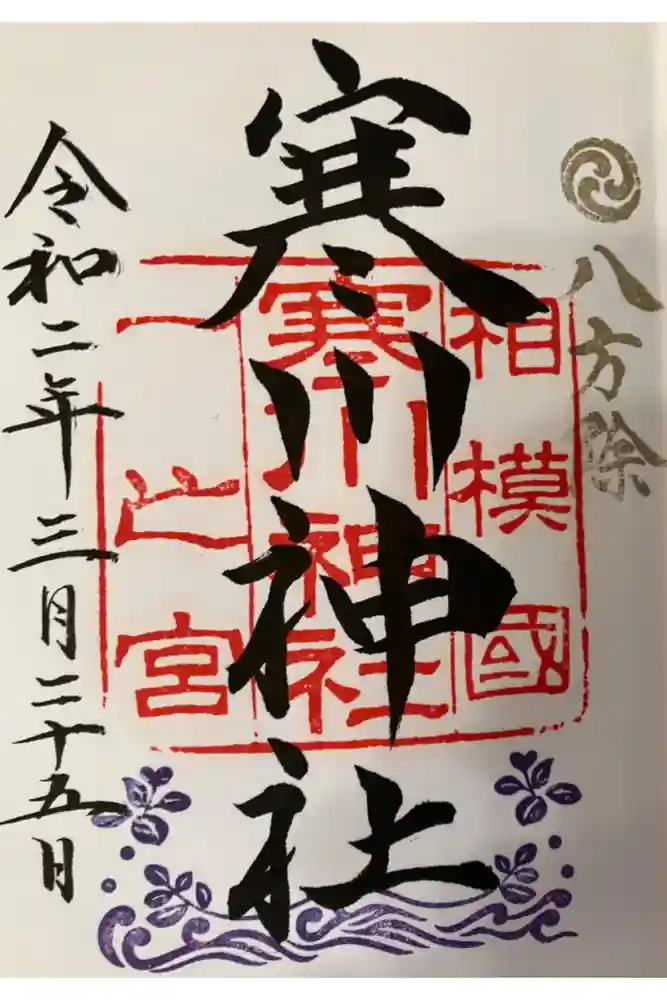 八方除
寒川神社
相模國
寒川神社
一之宮
令和二年三月二十五日